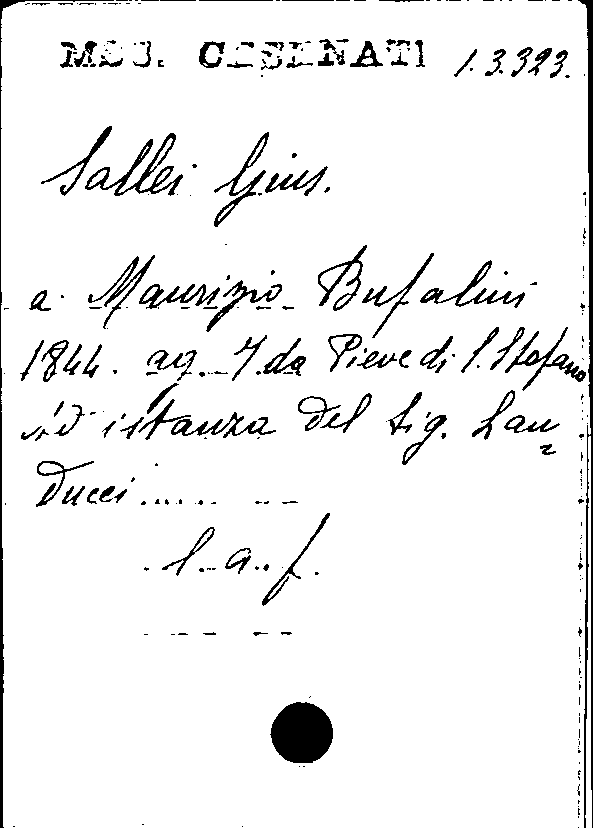 MSS. CESENATI 1.3.323.
Sallei Gius.
a Maurizio Bufalini
1844. ag. 7. da Pieve di S. Stefano
ad istanza del Sig. Lan=
ducci......
l. a. f.